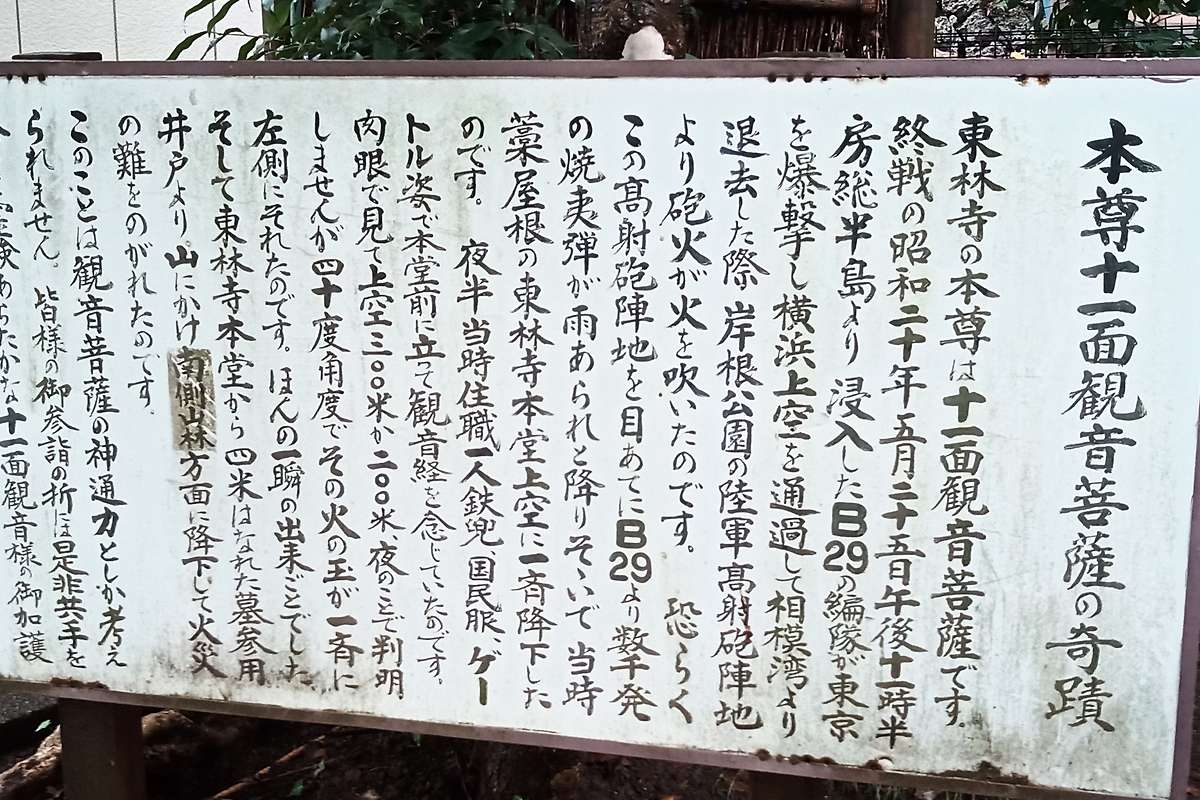 本尊十一面観音菩薩の奇蹟
東林寺の本尊は十一面観音菩薩です。
終戦の昭和二十年五月二十五日午後十一時半
房総半島より浸入したB29の編隊が東京
を爆撃し横浜上空を通過して相模湾より
退去した際 岸根公園の陸軍高射砲陣地
より砲火が火を吹いたのです。 恐らく
この髙射砲陣地を目あてにB29より数千発
の焼夷弾が雨あられと降りそゝいで当時
藁屋根の東林寺本堂上空に一斉降下した
のです。 夜半当時住職一人鉄兜、国民服、ゲー
トル姿で本堂前に立って観音経を念じていたのです。
肉眼で見て上空三〇〇米か二〇〇米、夜のことで判明
しませんが四十度角度でその火の玉が一斉に
左側にそれたのです。ほんの一瞬の出来ごとでした
そして東林寺本堂から四米はなれた墓参用
井戸より。山にかけ南側山林方面に降下して火災
の難をのがれたのです。
このことは観音菩薩の神通力としか考え
られません。 皆様の御参詣の折には是非共手を
験あらたかな十一面観音様の御加護